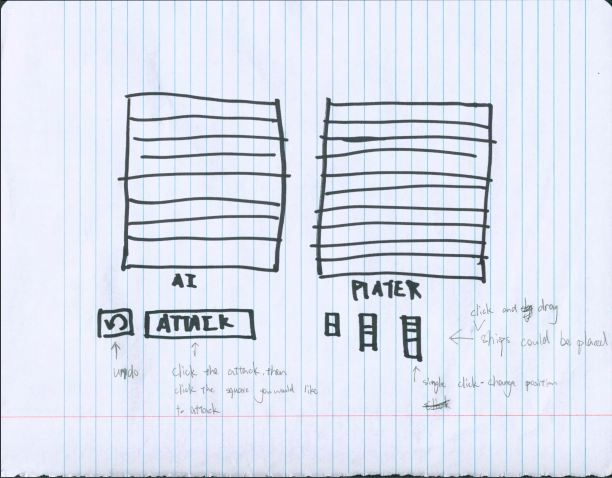 AI
PLAYER
ATTACK
undo
click the attack, then
click the square you would like
to attack
click and drag
ships could be placed
single click - change position
click